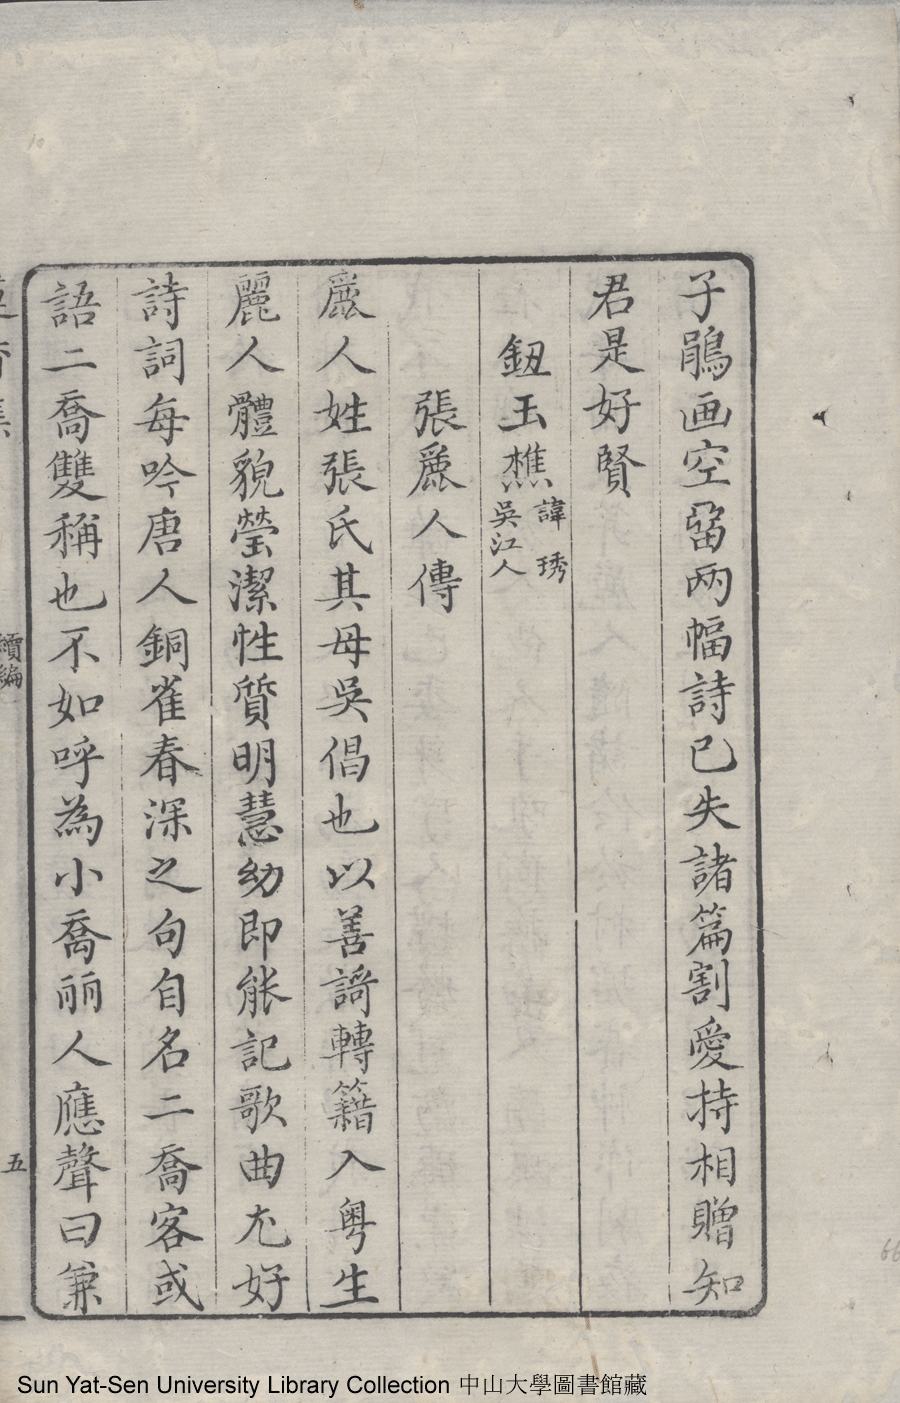 子鵑画空畱两幅詩已失諸篇割愛持相贈知
君是好賢
鈕玉樵 諱琇 吳江人
張麗人傳
麗人姓張氏其母吳倡也以善謌轉籍入粵生
麗人體貌瑩潔性質明慧幼即能記歌曲尤好
詩詞每吟唐人銅雀春深之句自名二喬客或
語二喬雙稱也不如呼為小喬丽人應聲曰兼
續編
五
Sun Yat-Sen University Library Collection 中山大學圖書館藏